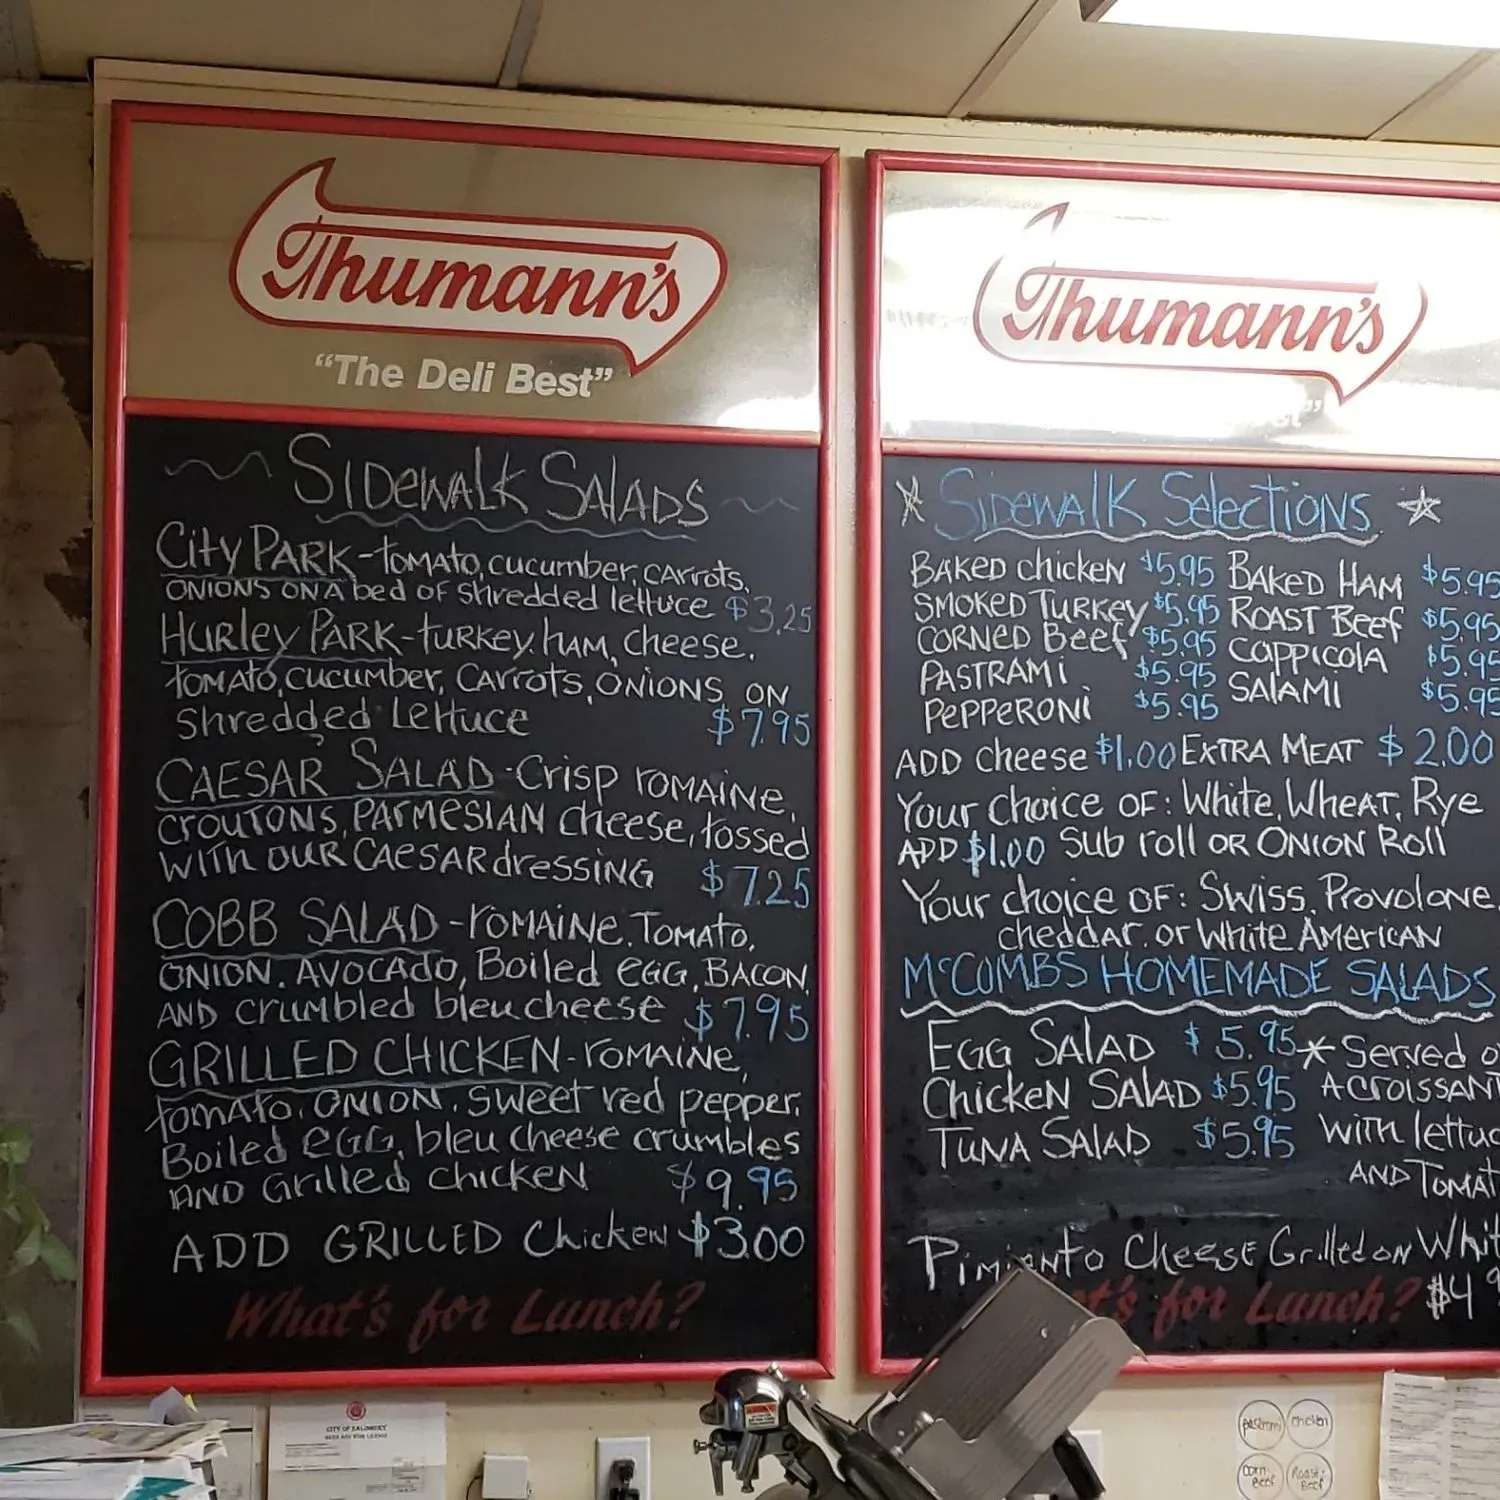 Thumann's
"The Deli Best"
SIDEWALK SALADS
City PARK - tomato, cucumber, carrots,
ONIONS ON A bed OF shredded lettuce $3.25
HURLEY PARK - turkey, HAM, cheese,
tomato, cucumber, CARROTS, ONIONS ON
shredded Lettuce $7.95
CAESAR SALAD - Crisp ROMAINE,
CROUTONS, PARMESIAN cheese, tossed
WITH OUR CAESAR dRESSING $7.25
COBB SALAD - ROMAINE, TOMATO,
ONION, AVOCADO, Boiled EGG, BACON,
AND crumbled bleu cheese $7.95
GRILLED CHICKEN - ROMAINE,
tomato, ONION, sweet red pepper,
Boiled EGG, bleu cheese crumbles
AND Grilled chicken $9.95
ADD GRILLED Chicken $3.00
What's for Lunch?
Thumann's
st"
SIDEWALK Selections
BAKED chicken $5.95 BAKED HAM $5.95
SMOKED TURKEY $5.95 ROAST Beef $5.95
CORNED Beef $5.95 CAPPICOLA $5.95
PASTRAMi $5.95 SALAMI $5.95
PePPERONi $5.95
ADD cheese $1.00 EXTRA MEAT $2.00
Your choice OF: White, WHEAT, Rye
ADD $1.00 Sub roll OR ONION Roll
Your choice OF: Swiss, Provolone,
cheddar, or White AMERICAN
McCOMBS HOMEMADE SALADS
EGG SALAD $5.95 * Served o
CHICKEN SALAD $5.95 A CROISSANT
TUNA SALAD $5.95 WITH lettuc
AND TOMAT
Pimiento Cheese Grilled on Whit
$4 9
t's for Lunch?
CITY OF SALISBURY
pastrami
chicken
Corn-
Beef
Roast-
Beef